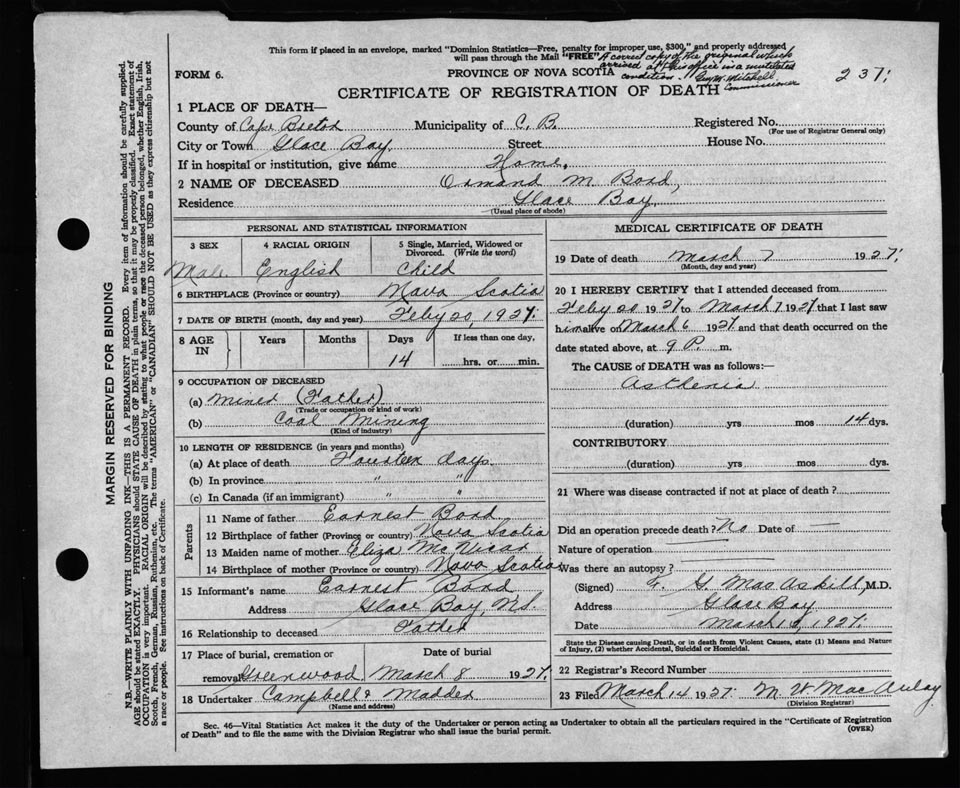 This form if placed in an envelope, marked "Dominion Statistics—Free, penalty for improper use, $300," and properly addressed
will pass through the Mail "FREE" A correct copy of the original which
arrived at this office in a mutilated
condition. Mitchell
Commissioner
237
FORM 6.
PROVINCE OF NOVA SCOTIA
CERTIFICATE OF REGISTRATION OF DEATH
1 PLACE OF DEATH—
County of Cape Breton Municipality of C. B. Registered No.
(For use of Registrar General only)
City or Town Glace Bay. Street House No.
If in hospital or institution, give name Home.
2 NAME OF DECEASED Ormand M. Bond,
Residence Glace Bay.
(Usual place of abode)
PERSONAL AND STATISTICAL INFORMATION
3 SEX 4 RACIAL ORIGIN 5 Single, Married, Widowed or
Divorced. (Write the word)
Male. English Child
6 BIRTHPLACE (Province or country) Nova Scotia
7 DATE OF BIRTH (month, day and year) Feby 20, 1927.
8 AGE
IN
Years Months Days If less than one day,
14 hrs. or min.
9 OCCUPATION OF DECEASED
(a) Miner (Father)
(Trade or occupation or kind of work)
(b) Coal Mining
(Kind of industry)
10 LENGTH OF RESIDENCE (in years and months)
(a) At place of death Fourteen days.
(b) In province " "
(c) In Canada (if an immigrant) " "
Parents
11 Name of father Earnest Bond.
12 Birthplace of father (Province or country) Nova Scotia
13 Maiden name of mother Eliza McVicar
14 Birthplace of mother (Province or country) Nova Scotia
15 Informant's name Earnest Bond
Address Glace Bay, N.S.
16 Relationship to deceased Father
17 Place of burial, cremation or Date of burial
removal Greenwood March 8 1927.
18 Undertaker Campbell & Madden
(Name and address)
MEDICAL CERTIFICATE OF DEATH
19 Date of death March 7 1927.
(Month, day and year)
20 I HEREBY CERTIFY that I attended deceased from
Feby 20 1927 to March 7 1927 that I last saw
him alive on March 6 1927 and that death occurred on the
date stated above, at 9 P. m.
The CAUSE of DEATH was as follows:—
Asthenia
(duration) yrs mos 14 dys.
CONTRIBUTORY
(duration) yrs mos dys.
21 Where was disease contracted if not at place of death?
Did an operation precede death? No Date of —
Nature of operation
Was there an autopsy?
(Signed) G. MacAskill, M.D.
Address Glace Bay
Date March 1927.
State the Disease causing Death, or in death from Violent Causes, state (1) Means and Nature
of Injury, (2) whether Accidental, Suicidal or Homicidal.
22 Registrar's Record Number
23 Filed March 14 1927. M. V. MacAulay
(Division Registrar)
Sec. 46—Vital Statistics Act makes it the duty of the Undertaker or person acting as Undertaker to obtain all the particulars required in the "Certificate of Registration
of Death" and to file the same with the Division Registrar who shall issue the burial permit.
(OVER)
MARGIN RESERVED FOR BINDING
N.B—WRITE PLAINLY WITH UNFADING INK—THIS IS A PERMANENT RECORD. Every item of information should be carefully supplied.
AGE should be stated EXACTLY. PHYSICIANS should STATE CAUSE OF DEATH in plain terms, so that it may be properly classified. Exact statement of
OCCUPATION is very important. RACIAL ORIGIN will be described by stating to what people or race the deceased person belonged, whether English, Irish,
Scotch, French, German, Russian, Ruthenian, etc. The terms "AMERICAN" or "CANADIAN" SHOULD NOT BE USED as they express citizenship but not
a race or people. See instructions on back of Certificate.